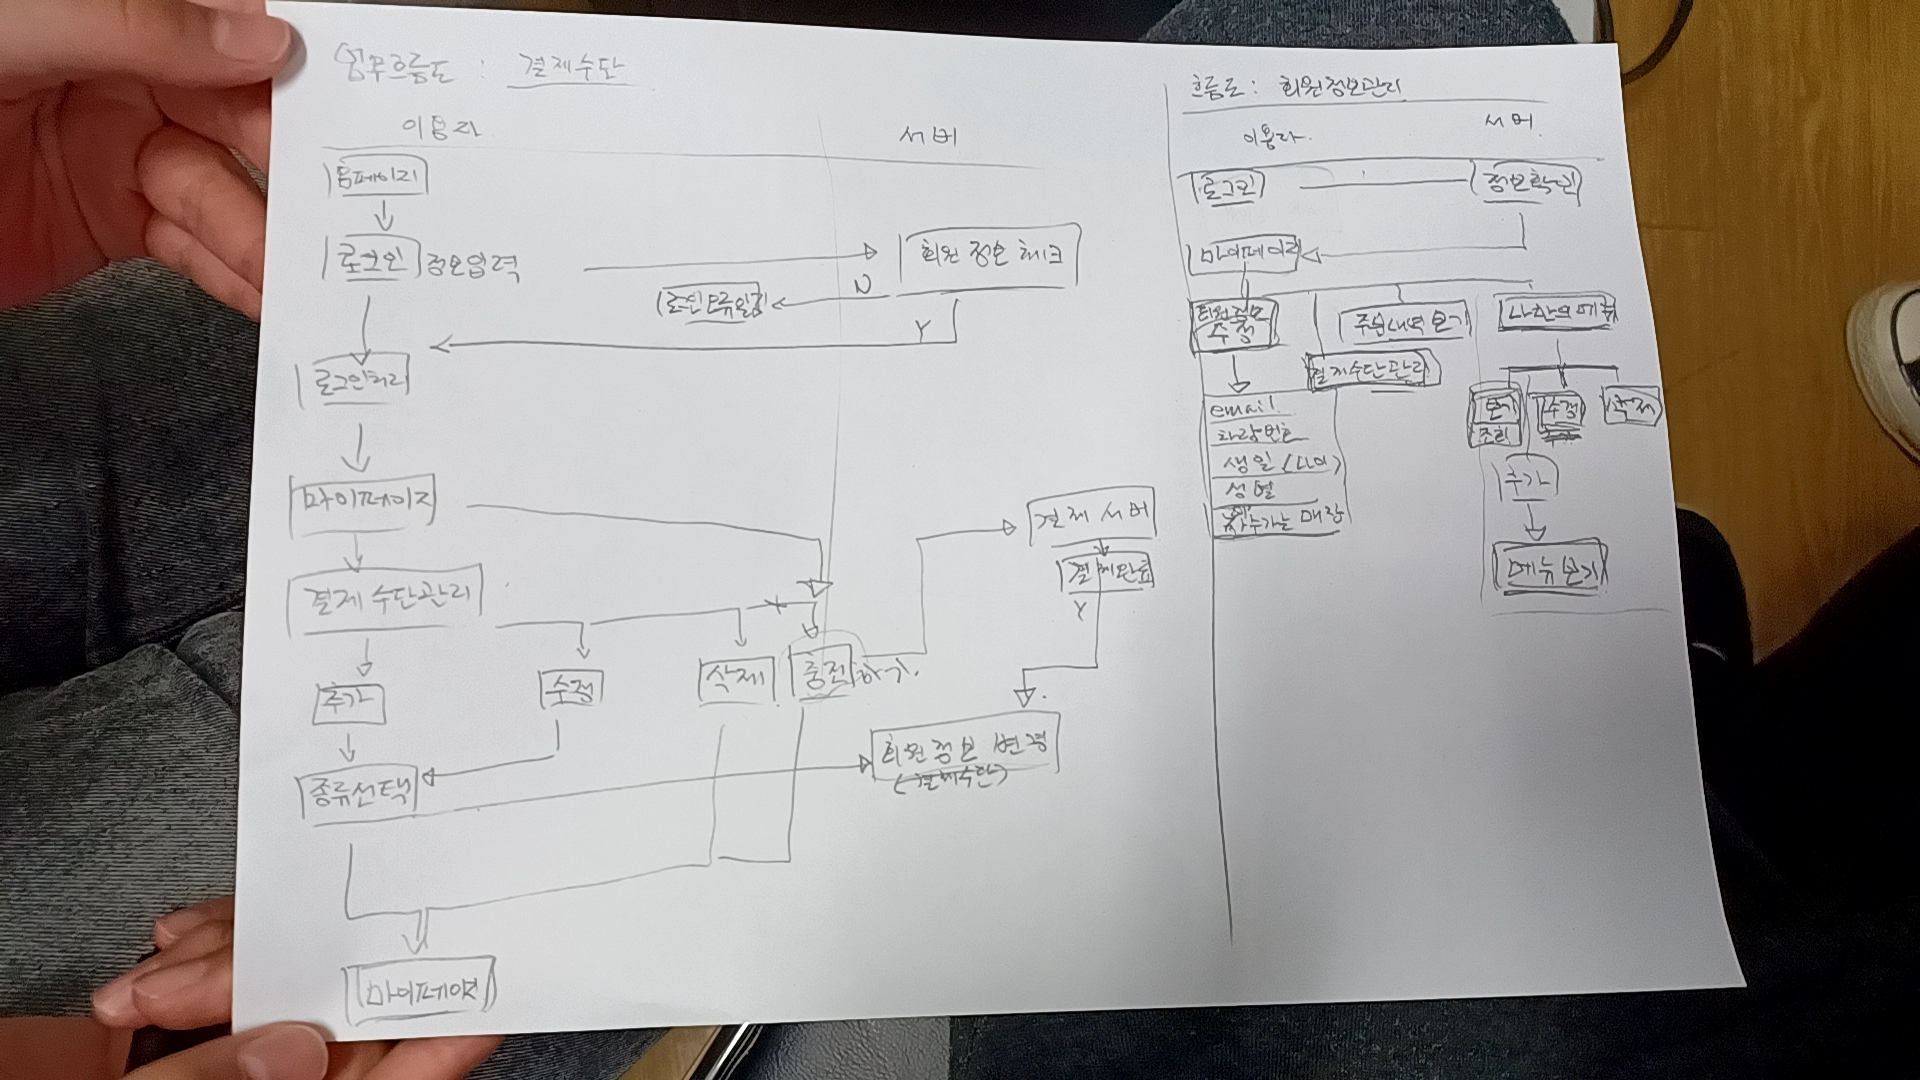 업무흐름도 : 결제수단
이용자
서버
홈페이지
로그인 정보입력
회원 정보 체크
N
로그인 오류알림
Y
로그인처리
마이페이지
결제 서버
결제완료
Y
결제 수단관리
추가
수정
삭제
충전하기.
종류선택
회원정보 변경
(결제수단)
마이페이지
흐름도 : 회원정보관리
이용자.
서버.
로그인
정보확인
마이페이지
회원정보
수정
주문내역 보기
나만의 메뉴
결제수단 관리
email
차량번호
생일 (나이)
성별
자주가는 매장
보기
조회
수정
삭제
추가
메뉴 보기